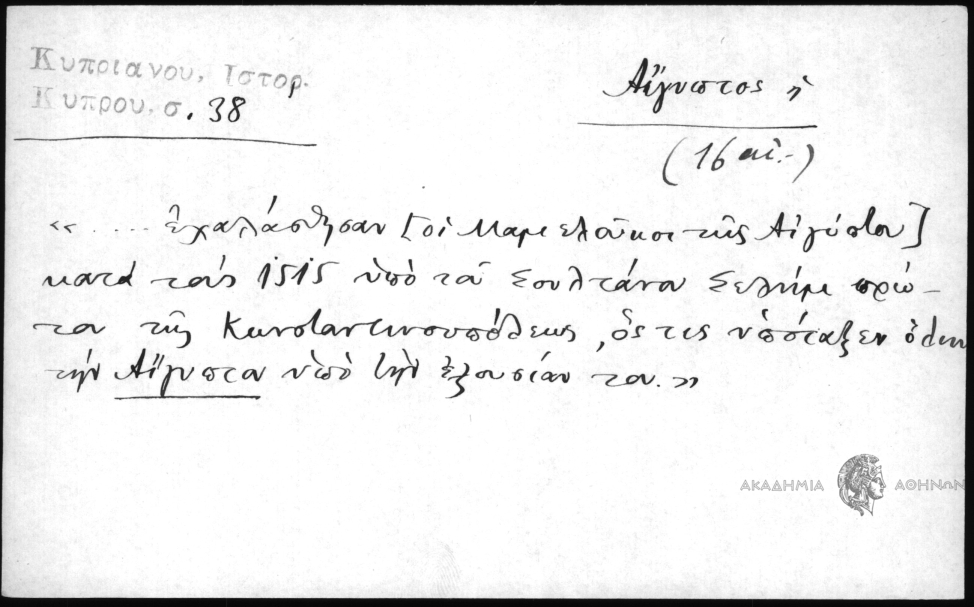 Κυπριανου, Ιστορ.
Κυπρου, σ. 38
Αἴγυπτος ἡ
(16 αἰ.-)
«.... ἐχαλάσθησαν [οἱ Μαμελοῦκοι τῆς Αἰγύπτου]
κατὰ τοὺς 1515 ὑπὸ τοῦ Σουλτάνου Σελήμ πρώ-
του τῆς Κωνσταντινουπόλεως, ὅς τις ὑπόταξεν ὅλην
τὴν Αἴγυπτον ὑπὸ τὴν ἐξουσίαν του.»
ΑΚΑΔΗΜΙΑ ΑΘΗΝΩΝ